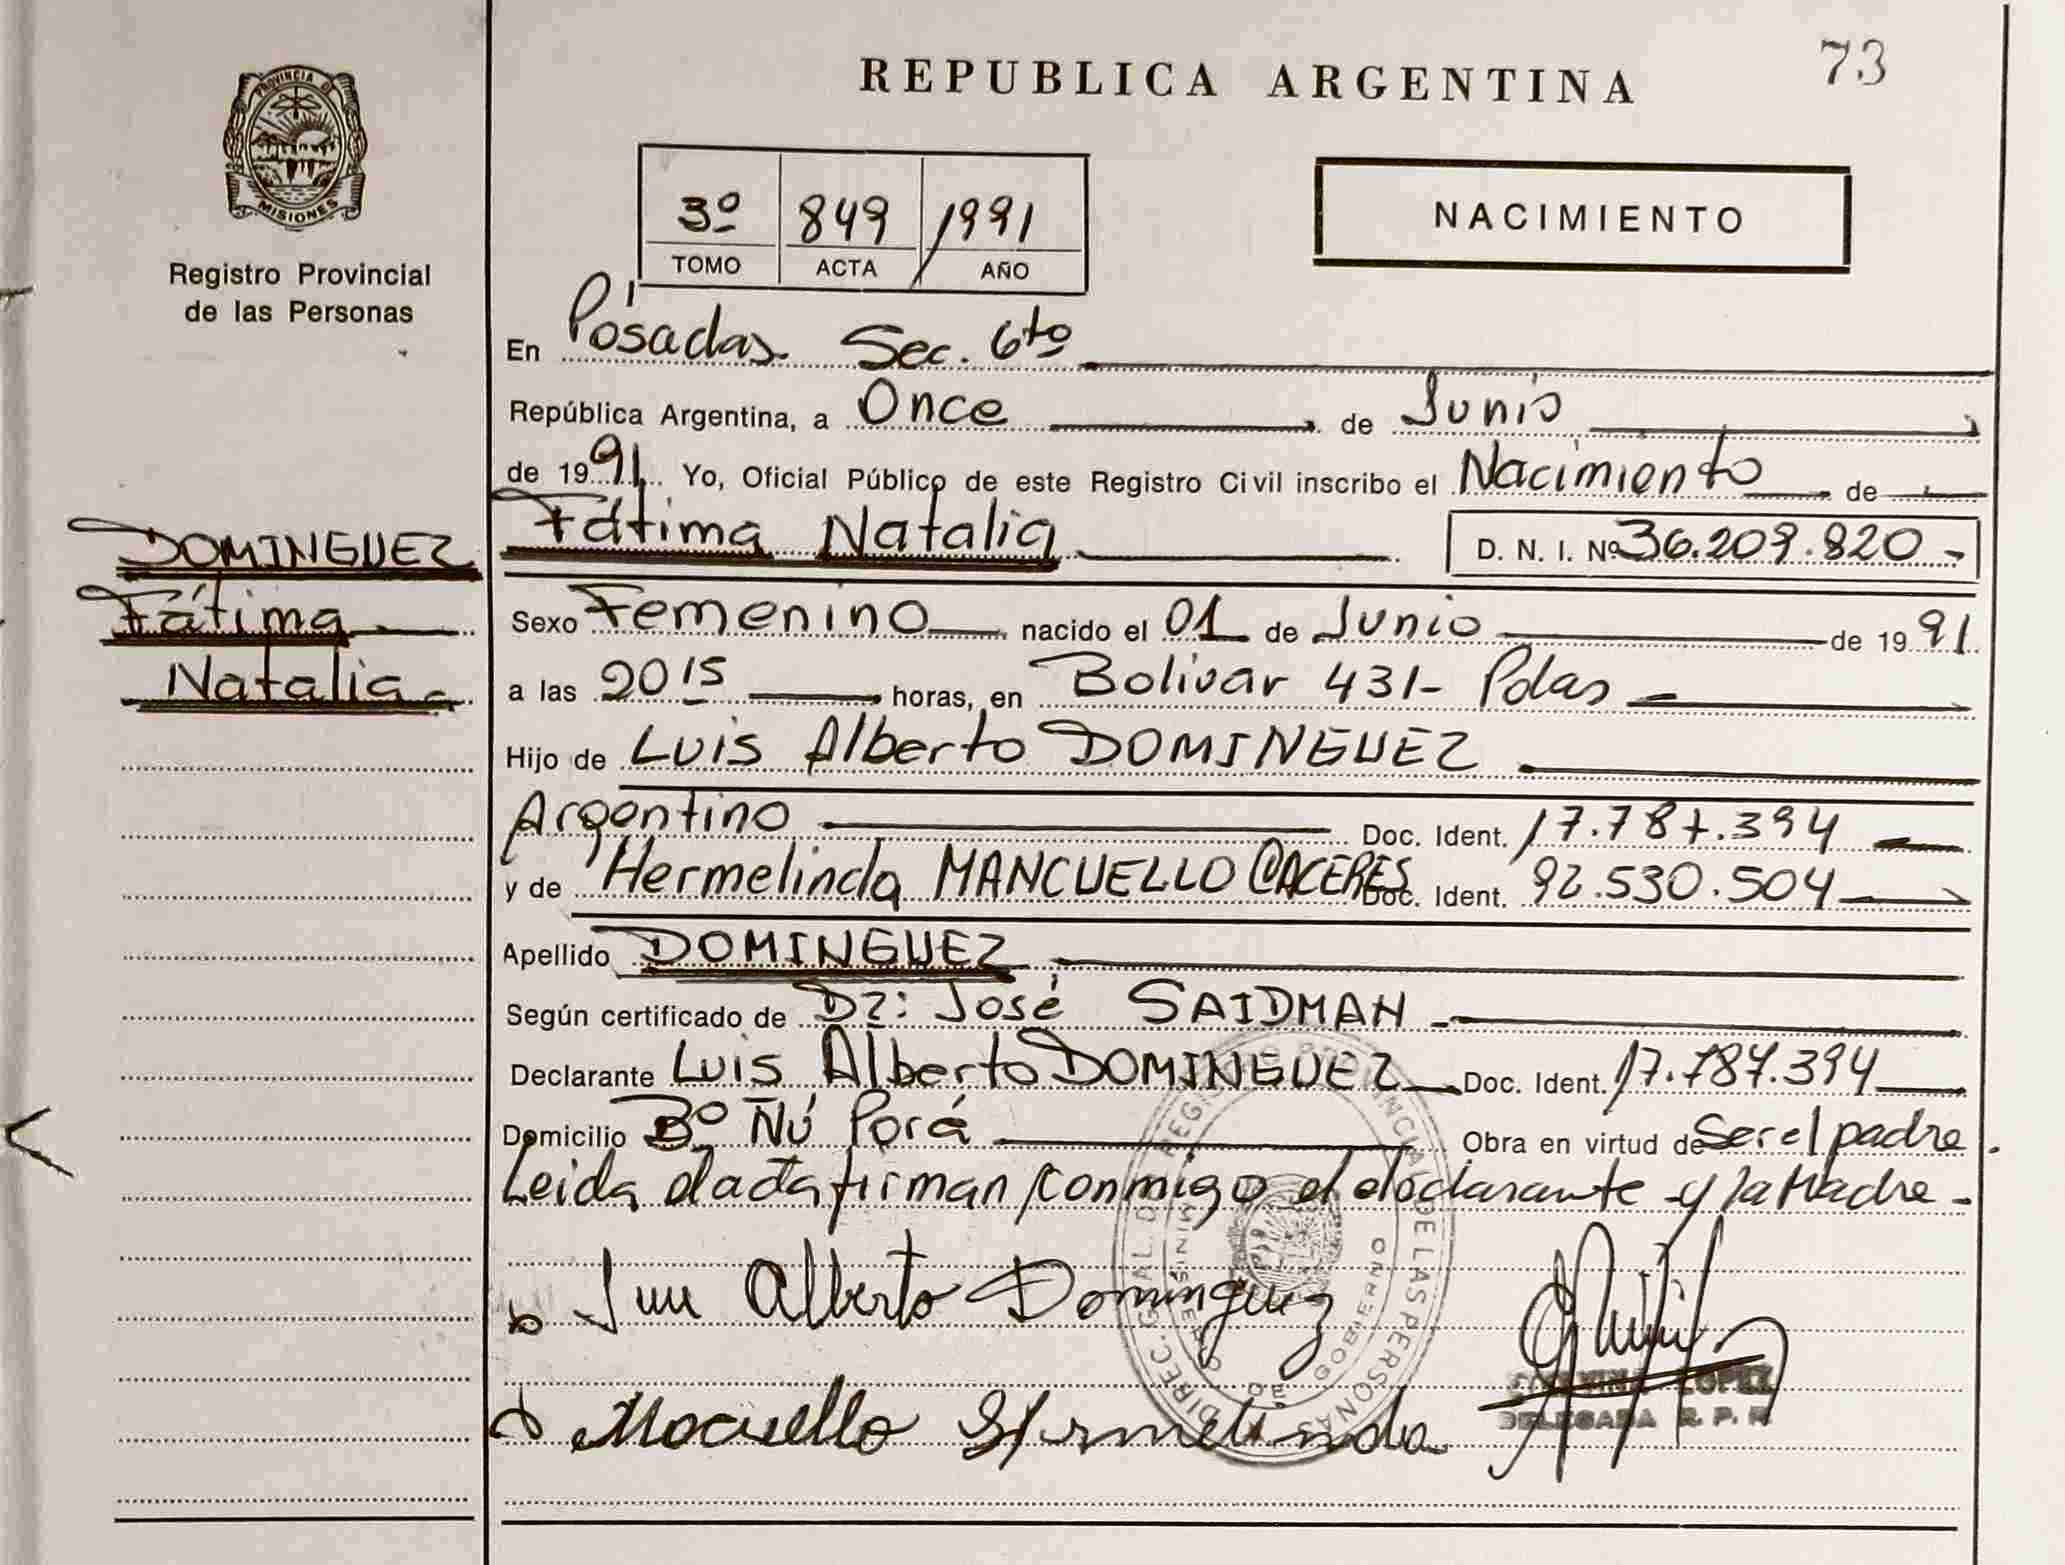 73
REPUBLICA ARGENTINA
PROVINCIA DE
MISIONES
Registro Provincial
de las Personas
3º 849 1991
TOMO ACTA AÑO
NACIMIENTO
En Posadas. Sec. 6to
República Argentina, a Once de Junio
de 1991. Yo, Oficial Público de este Registro Civil inscribo el Nacimiento de
DOMINGUEZ
Fátima
Natalia
Fátima Natalia D. N. I. Nº 36.209.820.-
Sexo Femenino nacido el 01 de Junio de 1991.
a las 20 15 horas, en Bolivar 431- Pdas
Hijo de Luis Alberto DOMINGUEZ
Argentino Doc. Ident. 17.787.394
y de Hermelinda MANCUELLO CACERES Doc. Ident. 92.530.504
Apellido DOMINGUEZ
Según certificado de Dr: José SAIDMAN
Declarante Luis Alberto DOMINGUEZ Doc. Ident. 17.787.394
Domicilio Bº Ñú Porá Obra en virtud de Ser el padre.
Leida el acta firman conmigo el declarante y la Madre-
Luis Alberto Dominguez
Mocuello Hermelinda
DIREC. GRAL. DEL REGISTRO PROVINCIAL DE LAS PERSONAS
MINISTERIO DE GOBIERNO
LOPEZ
DELEGADA R. P. P.